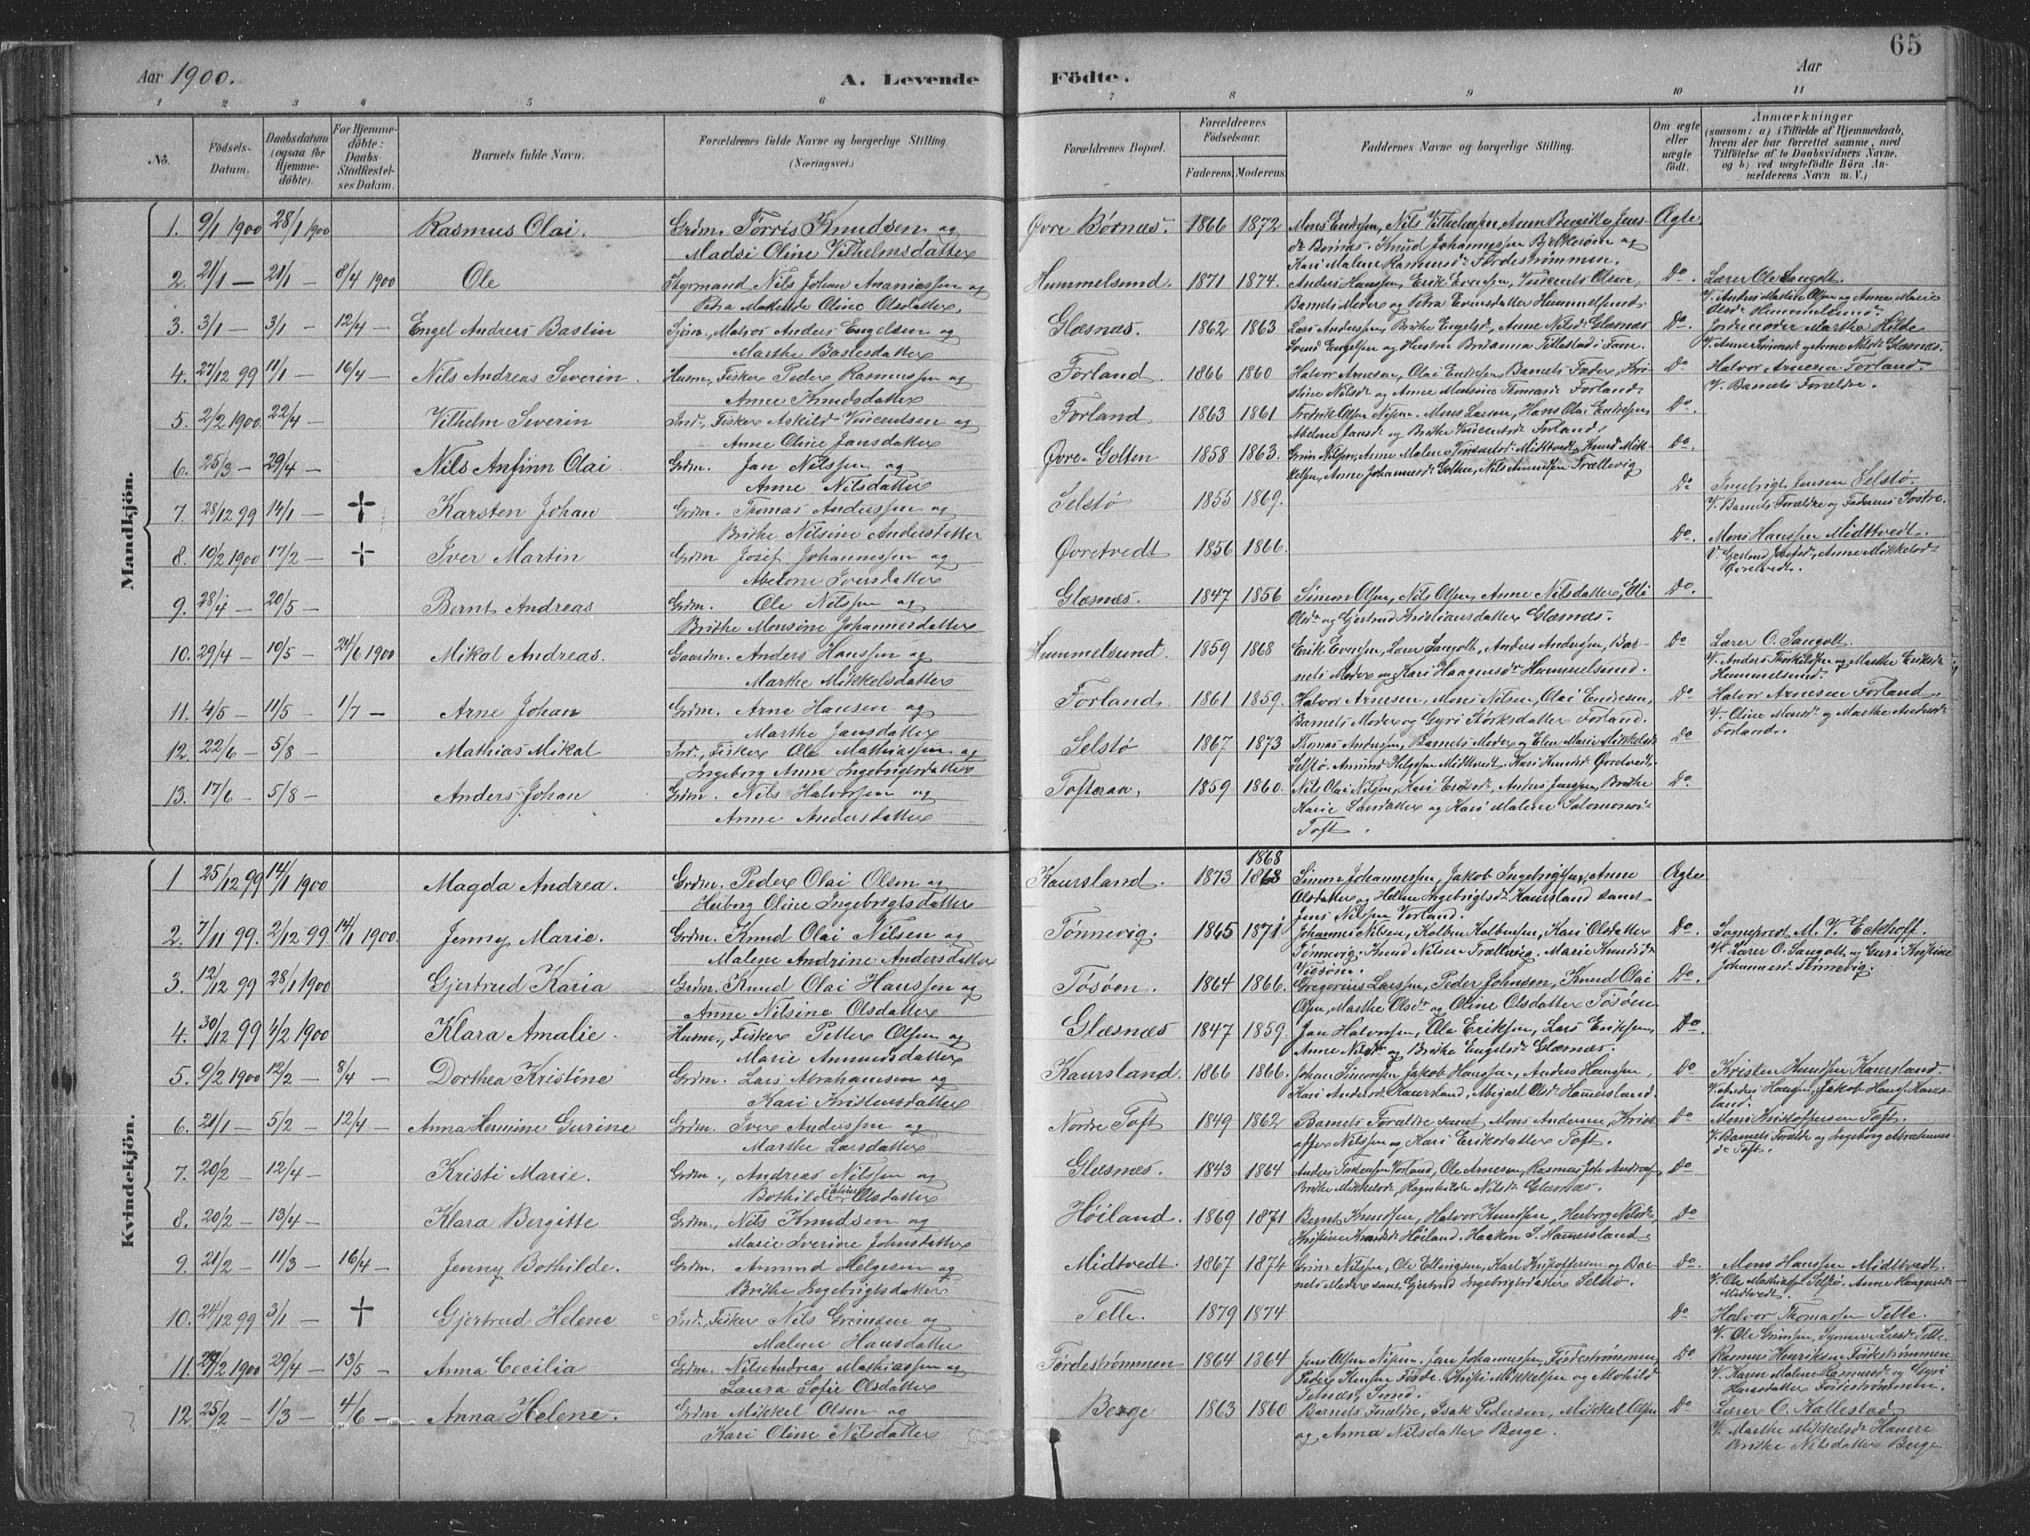 65
Aar 1900.
A. Levende Födte.
Aar
1 2 3 4 5 6 7 8 9 10 11
No.
Födsels-Datum.
Daabsdatum (ogsaa for Hjemme-döbte).
For Hjemme-döbte: Daabs-Stadfæstel-ses Datum.
Barnets fulde Navn.
Forældrenes fulde Navne og borgerlige Stilling. (Næringsvei.)
Forældrenes Bopæl.
Forældrenes Födselsaar.
Faderens. Moderens.
Faddernes Navne og borgerlige Stilling.
Om ægte eller uægte födt.
Anmærkninger
(saasom: a) i Tilfælde af Hjemmedaab, hvem der har forrettet samme, med Tilföielse af to Daabsvidners Navne, og b) ved uægtefödte Börn An-melderens Navn m. V.)
Mandkjön.
1. 9/1 1900 28/1 1900 Rasmus Olai. Grdm. Torris Knudsen og Øvre Børnæs. 1866 1872 Mons Endresen, Nils Vilhelmsen, Ægte
Madsi Oline Vilhelmsdatter
Kari Malene Rasmusd. Førdestrømmen.
2. 21/1 — 21/1 — 8/4 1900 Ole Styrmand Nils Johan Ananiassen og Hummelsund. 1871 1874. Anders Hanssen, Erik Evensen, Do. Lærer Ole Sangolt
Petra Olsdatter. Barnets Moder og Petra Evensdatter Hummelsund. V. Anders Olsen og Anne Marie
Olsd. Hummelsund.
3. 3/1 — 3/1 — 12/4 — Engel Andreas Bastin Sjøm., Matros Anders Engelsen og Glæsnæs. 1862 1863 Lars Anderssen, Brithe Engelsd., Anne Nilsd. Glæsnæs Do. Jordemoder Martha Hilde
Marthe Bastesdatter V. Anne Simonsd. og Anne Nilsd. Glæsnæs.
4. 27/12 99 11/1 — 16/4 — Nils Andreas Severin. Husm., Fisker Peder Rasmussen og Forland. 1866 1860 Halvor Arnesen, Olai Endresen, Barnets Fader, Do Halvor Arnesen Forland.
Anne Knudsdatter Forland. V. Barnets Forældre.
5. 2/2 1900. 22/4 — Vilhelm Severin Ind., Fisker Askild Vincentsen og Forland 1863 1861 Fredrik Olsen Nipen. Mons Larsen, Hans Olai Endresen, Do.
Anne Oline Jansdatter Abelone Jansd. og Brithe Vincentsd. Forland.
6. 25/3 — 29/4 — Nils Anfinn Olai. Grdm. Jan Nilssen og Øvre-Golten 1858 1863. Grim Nilssen, Anne Malene Midttvedt, Knud Mik- Do.
Anne Nilsdatter kelsen, Anne Johannesd. Golten, Nils Amundsen Trællevig
7. 28/12 99 14/1 — ✝ Karsten Johan Grdm. Thomas Anderssen og Selstø 1855 1869. Do Ingebrigt Jensen Selstø.
Brithe Nilsine Andersdatter V. Barnets Forældre og Faderens Søstre.
8. 10/2 1900 17/2 — ✝ Iver Martin Grdm Josef Johannessen og Øvretvedt 1856 1866. Do. Mons Hanssen Midttvedt.
Abelone Iversdatter Anne Mikkelsd. Øvretvedt.
9. 28/4 — 20/5 — Bernt Andreas Grdm. Ole Nilssen og Glæsnæs. 1847 1856 Simon Olsen, Nils Olsen, Anne Nilsdatter, Do.
Brithe Monsine Johannesdatter Olsd. og Gjertrud Kristiansdatter Glæsnæs.
10. 29/4 — 10/5 — 24/6 1900 Mikal Andreas. Gaardm. Anders Hanssen og Hummelsund. 1859 1868 Erik Evensen, Lærer Sangolt, Anders Andersen, Bar- Do Lærer O. Sangolt.
Marthe Mikkelsdatter nets Moder og Kari Haagensd. Hummelsund. V. Anders Thorkildsen og Marthe Eriksd. Hummelsund.
11. 4/5 — 11/5 — 1/7 — Arne Johan Grdm. Arne Hansen og Forland. 1861 1859. Halvor Arnesen, Mons Nilsen, Olai Endresen, Do Halvor Arnesen Forland.
Marthe Jansdatter Barnets Moder og Gyri Forland. V. Oline Monsd. og Marthe Andersd. Forland.
12. 22/6 — 5/8 — Mathias Mikal Ind., Fisker Ole Mathiassen og Selstø 1867 1873 Thomas Anderssen, Barnets Moder og Elen Marie Mikkelsd. Do
Ingeborg Anne Ingebrigtsdatter Selstø. Amund Helgesen Midttvedt. Kari Knudsd. Øvretvedt.
13. 17/6 — 5/8 — Anders Johan Grdm. Nils Halvorsen og Tofteraa. 1859 1860. Nils Olai Nilsen, Kari Eriksd., Anders Jenssen, Brithe Do.
Anne Andersdatter Karie Larsdatter og Kari Malene Salomonsd. Toft.
Kvindekjön.
1 25/12 99 14/1 1900 Magda Andrea. Grdm. Peder Olai Olsen og Kaursland. 1873 1868 1868 Simon Johannessen, Jakob Ingebrigtsen, Anne Ægte
Herborg Oline Ingebrigtsdatter Olsdatter og Helene Ingebrigtsd. Kaursland samt
Jens Nilssen Vorland.
2. 7/11 99. 2/12 99 14/1 1900. Jenny Marie. Grdm. Knud Olai Nilsen og Tønnevig. 1865 1871 Johannes Nilsen, Kolben Kolbensen, Kari Olsdatter Do. Sognepræst M. V. Eckhoff.
Malene Andrine Andersdatter Tønnevig. Knud Nilsen Trællevig. Marie Knudsd. V. Lærer O. Sangolt og Guri Kristine Johannesd. Tønnevig.
3. 12/12 99 28/1 1900 Gjertrud Karia Grdm. Knud Olai Hanssen og Tøsøen. 1864 1866. Gregorius Larssen, Peder Johnsen, Knud Olai Do.
Anne Nilsine Olsdatter Olsen, Marthe Olsd. og Oline Olsdatter Tøsøen.
4. 30/12 99 4/2 1900 Klara Amalie. Husm., Fisker Petter Olsen og Glæsnæs 1847 1859. Jan Halvorsen, Ole Eriksen, Lars Eriksen, Do.
Marie Amundsdatter Anne Nilsd. og Brithe Engelsd. Glæsnæs.
5. 9/2 1900 12/2 — 8/4 — Dorthea Kristine Grdm. Lars Abrahamsen og Kaursland. 1866 1866. Johan Simonsen, Jakob Hanssen, Anders Hanssen, Do Kristen Knudsen Kaursland.
Kari Kristensdatter Kari Andersd. Kaursland, Abigael Olsd. Hamersland. V. Anders Hansen, Jakob Hansen Kaursland.
6. 21/1 — 5/2 — 12/4 — Anna Hermine Gurine Grdm. Iver Anderssen og Nordre Toft 1849 1862 Barnets Forældre samt Mons Andersen, Krist- Do Mons Kristoffersen Toft.
Marthe Larsdatter offer Nilssen og Kari Eriksdatter Toft. V. Barnets Forældre og Ingeborg Abrahamsd. Toft.
7. 20/2 — 12/4 — Kristi Marie. Grdm., Andreas Nilssen og Glæsnæs. 1843 1864 Anders Vorland, Ole Arnesen, Rasmus Joh. Andreas, Do
Bothilde Oline Olsdatter Brithe Mikkelsd., Ragnhilde Nilsd. Glæsnæs.
8. 20/2 — 13/4 — Klara Bergitte Grdm., Nils Knudsen og Høiland. 1869 1871 Bernt Knudsen, Halvor Knudsen, Herborg Nilsd., Do
Marie Sverine Johnsdatter Kristine Knudsd. Høiland, Haakon S. Hamersland.
9. 21/2 — 11/3 — 16/4 — Jenny Bothilde. Grdm. Amund Helgesen og Midtvedt. 1867 1874 Grim Nilssen, Ole Ellingsen, Karl Kristoffersen og Bar- Do. Mons Hanssen Midttvedt.
Brithe Ingebrigtsdatter nets Moder samt Gjertrud Ingebrigtsdatter Selstø. V. Ole Mathiassen Selstø. Anne Haagensd. Midtvedt.
10. 24/12 99 3/1 — ✝ Gjertrud Helene Ind., Fisker Nils Grimsen og Telle. 1879 1874 Do Halvor Thomassen Telle.
Malene Hansdatter V. Ole Grimsen, Synneve Larsd. Telle.
11. 24/2 1900 29/4 — 13/5 — Anna Cecilia Grdm. Nils Andreas Mathiassen og Førdestrømmen 1864 1864 Jens Olsen Nipen. Jan Johannessen, Førdestrømmen, Do Rasmus Henriksen Førdestrømmen
Laura Sofie Olsdatter Peder Førde. Kristi Mikkelsen og V. Karen Malene Rasmusd. og Gyri
Telnæs, Sund. Hansdatter Førdestrømmen.
12. 25/2 — 1/3 — 4/6 — Anna Helene. Grdm Mikkel Olsen og Berge 1863 1860 Barnets Forældre, Isak Pedersen, Mikkel Olsen Do Lærer O. Kallestad
Kari Oline Nilsdatter og Anna Nilsdatter Berge. V. Marthe Mikkelsd. Havere
Brithe Nilsdatter Berge.